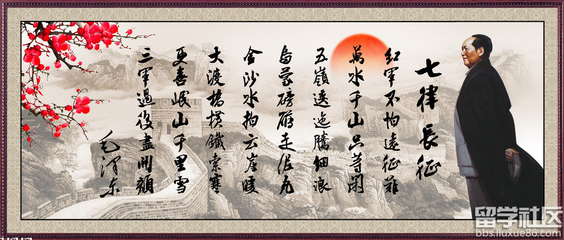 七律 長征
紅軍不怕遠征難
萬水千山只等閑
五嶺逶迤騰細浪
烏蒙磅礴走泥丸
金沙水拍云崖暖
大渡橋橫鐵索寒
更喜岷山千里雪
三軍過後盡開顏
毛澤東
留学社区
bbs.liuxue86.com